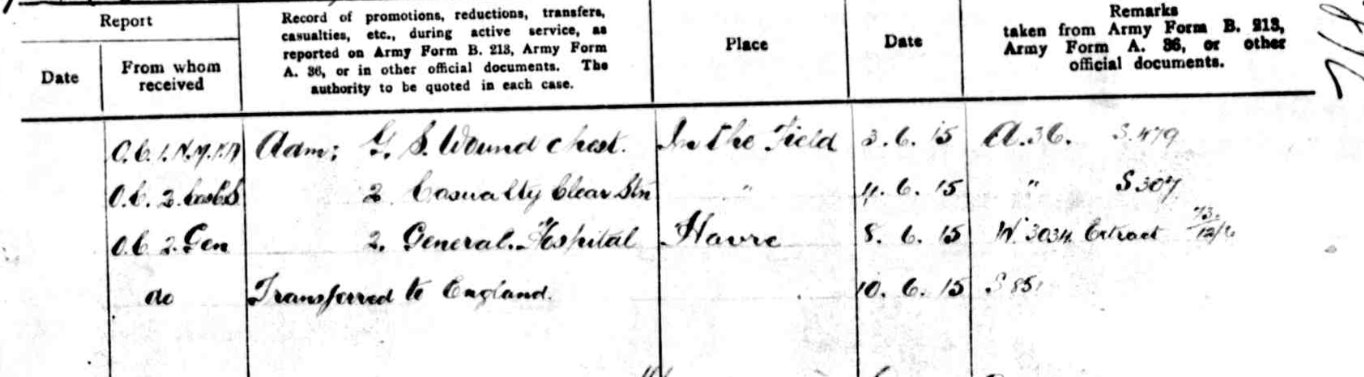 Report
Date
From whom
received
Record of promotions, reductions, transfers,
casualties, etc., during active service, as
reported on Army Form B. 213, Army Form
A. 36, or in other official documents. The
authority to be quoted in each case.
Place
Date
Remarks
taken from Army Form B. 213,
Army Form A. 36, or other
official documents.
O.C. 1. Adm: G. S. Wound chest. In the Field 3. 6. 15 A.36. S.479
O.C. 2. 2 Casualty Clear Stn " 4. 6. 15 " S307
O.C. 2. Gen 2. General Hospital Havre 8. 6. 15 W. 3034 Extract
do Transferred to England. 10. 6. 15